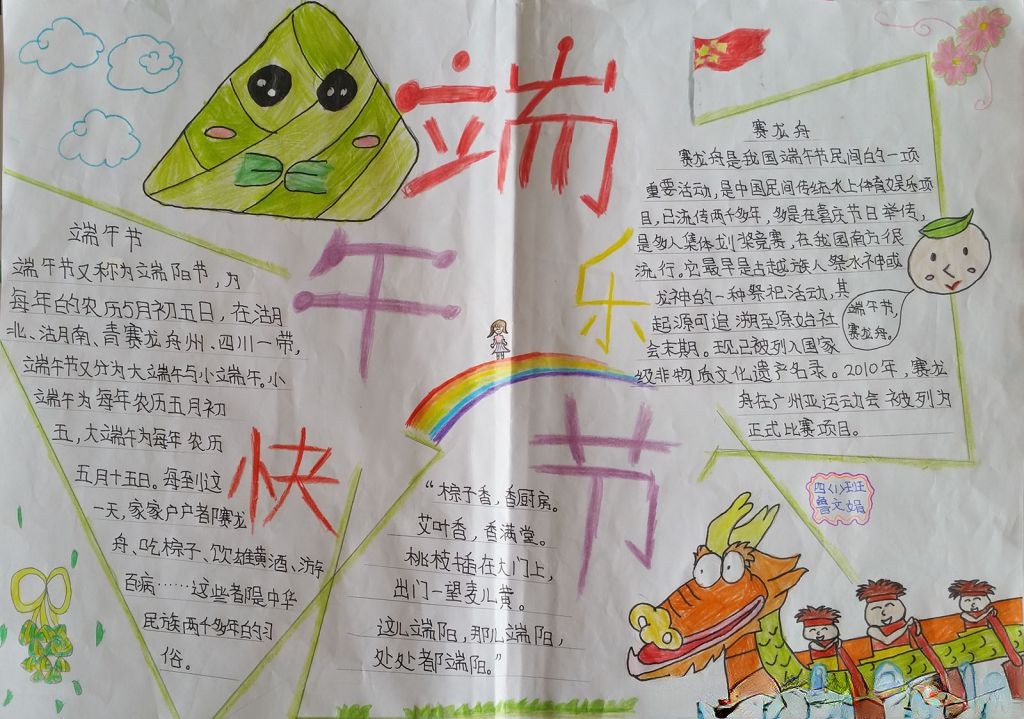 端午节快乐
端午节
端午节又称为端阳节，为
每年的农历5月初五日，在湖
北、湖南、青赛龙舟州、四川一带，
端午节又分为大端午与小端午。小
端午为每年农历五月初
五，大端午为每年农历
五月十五日。每到这
一天，家家户户都赛龙
舟、吃棕子、饮雄黄酒、游
百病……这些都是中华
民族两千多年的习
俗。
“棕子香，香厨房。
艾叶香，香满堂。
桃枝插在大门上，
出门一望麦儿黄。
这儿端阳，那儿端阳，
处处都端阳。”
赛龙舟
赛龙舟是我国端午节民间的一项
重要活动，是中国民间传统水上体育娱乐项
目，已流传两千多年，多是在喜庆节日举传，
是多人集体划桨竞赛，在我国南方很
流行。它最早是古越族人祭水神或
龙神的一种祭祀活动，其
起源可追溯至原始社
会末期。现已被列入国家
级非物质文化遗产名录。2010年，赛龙
舟在广州亚运动会被列为
正式比赛项目。
端午节，
赛龙舟。
四（1）班
曾文娟